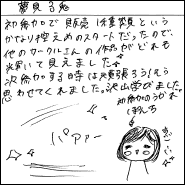 初参加で販売1種類という
かなり控えめのスタートだったので、
他のサークルさんの作品がどれも
輝いて見えました。
次参加する時は頑張ろう!!と
思わせてくれました。沢山学びました。
初参加の
しました
パァァー